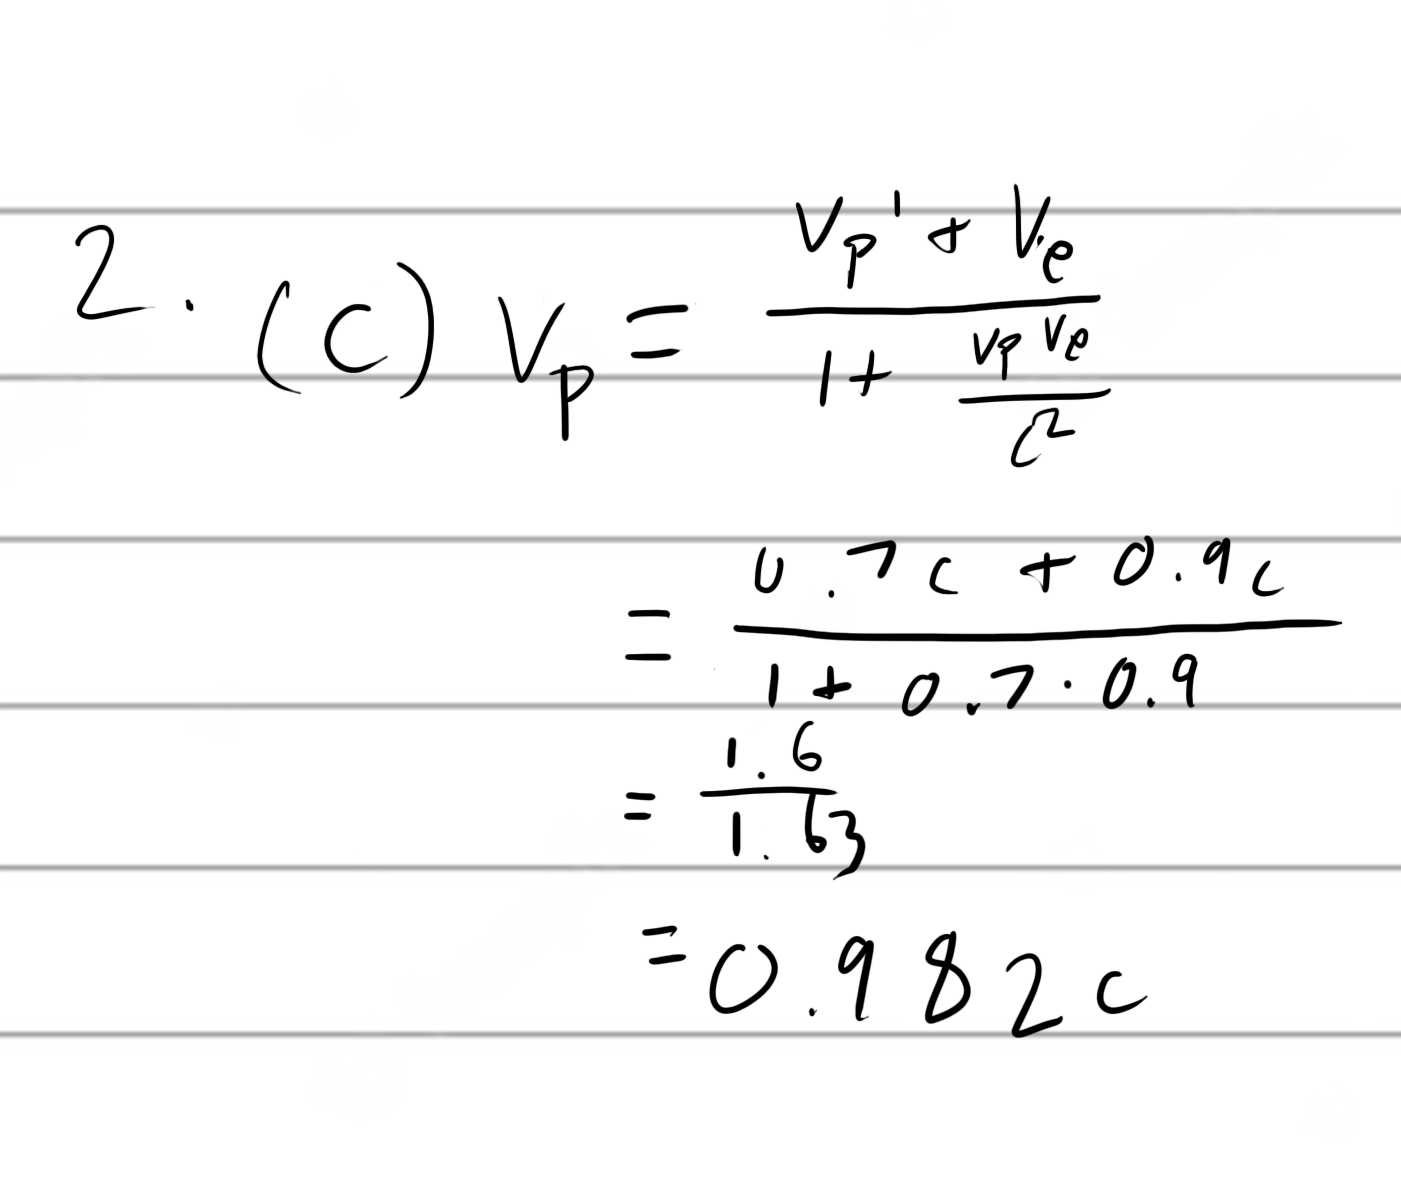 2. (c) Vp = (Vp' + Ve) / (1 + (Vp Ve) / c²)
= (0.7c + 0.9c) / (1 + 0.7 · 0.9)
= 1.6 / 1.63
= 0.982c